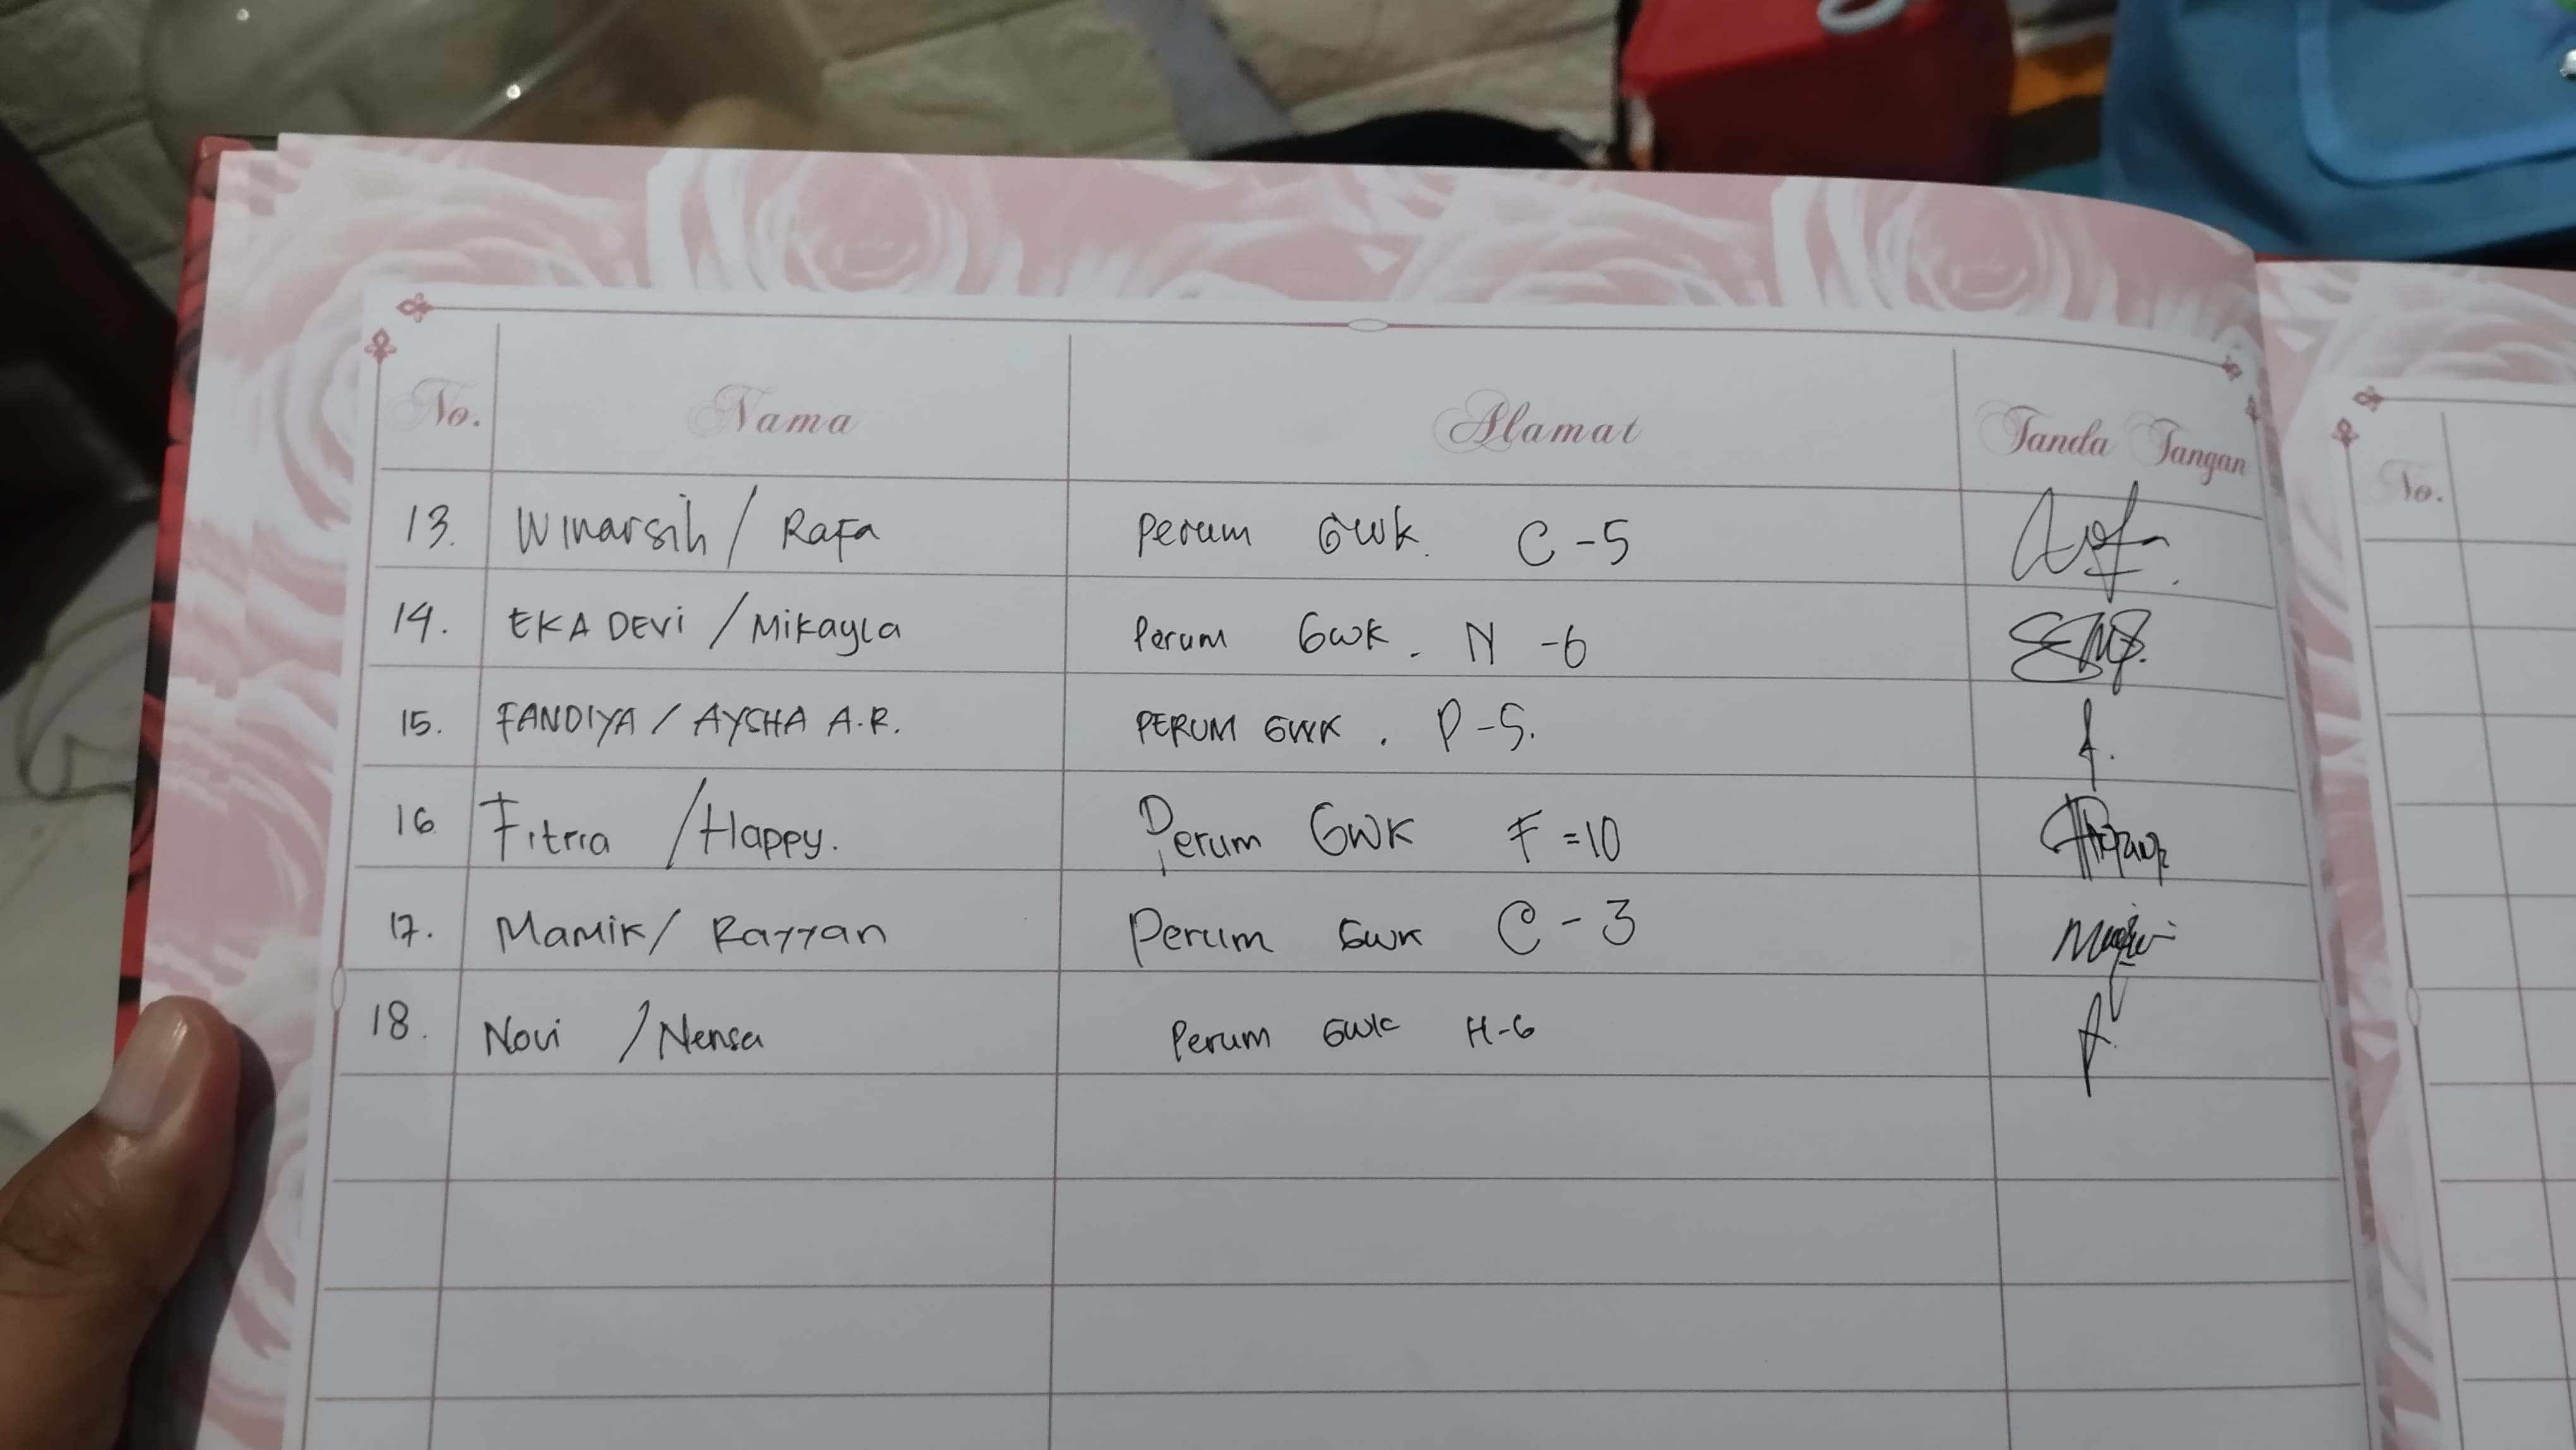 No. Nama Alamat Tanda Tangan
13. Winarsih / Rafa Perum GWK. C-5
14. EKA DEVi / Mikayla Perum GWK. N-6
15. FANDIYA / AYSHA A.R. PERUM GWK. P-5.
16 Fitria / Happy. Perum GWK F=10
17. Mamik / Rayyan Perum GWK C-3
18. Novi / Nensa Perum GWK H-6
No.